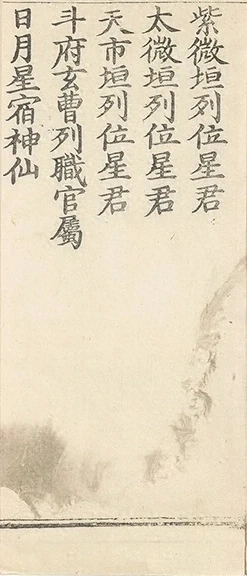 紫微垣列位星君
太微垣列位星君
天市垣列位星君
斗府玄曹列職官屬
日月星宿神仙